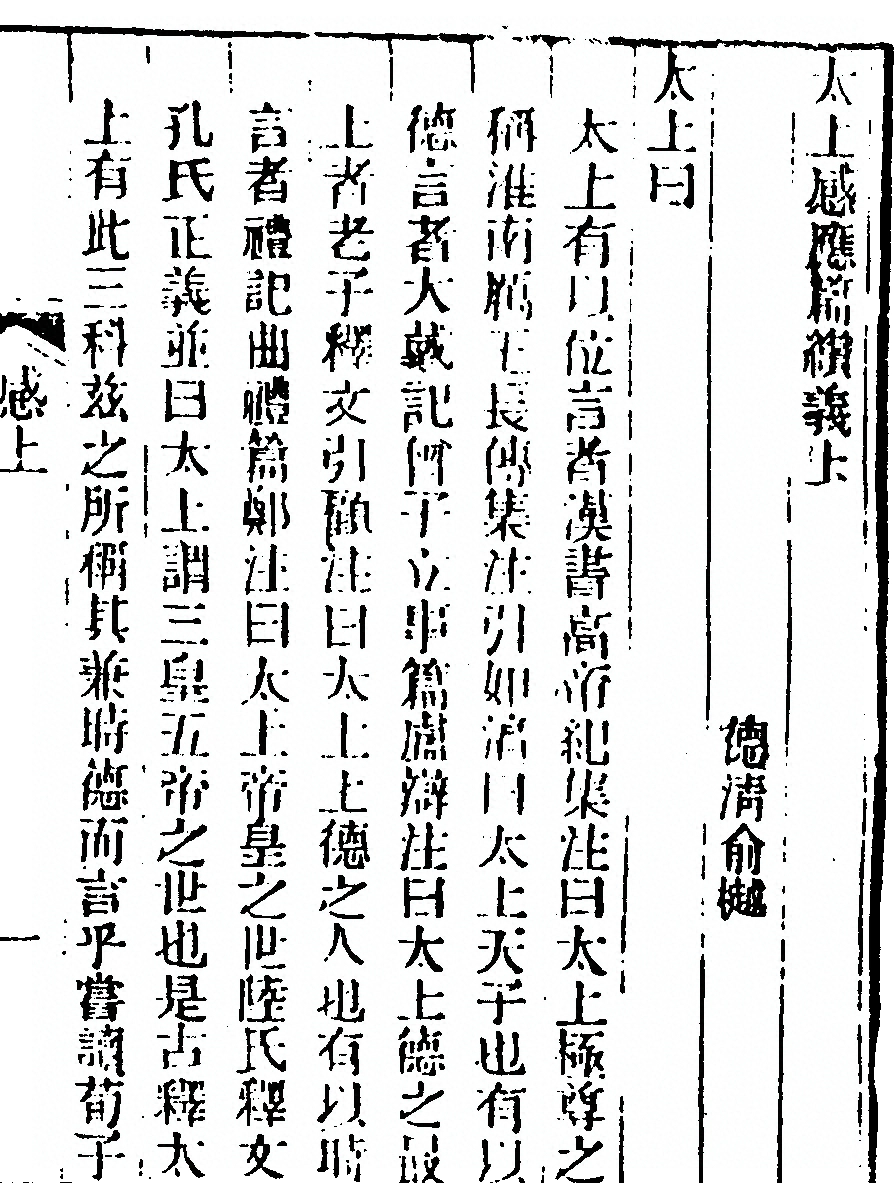 太上感應篇纘義上
德清俞樾
太上曰
太上有以位言者漢書高帝紀集注曰太上極尊之
稱淮南厲王長傳集注引如淳曰太上天子也有以
德言者大戴記曾子立事篇盧辯注曰太上德之最
上者老子釋文引顧注曰太上上德之人也有以時
言者禮記曲禮篇鄭注曰太上帝皇之世陸氏釋文
孔氏正義並曰太上謂三皇五帝之世也是古釋太
上有此三科茲之所稱其兼時德而言乎嘗讀荀子
感上
一